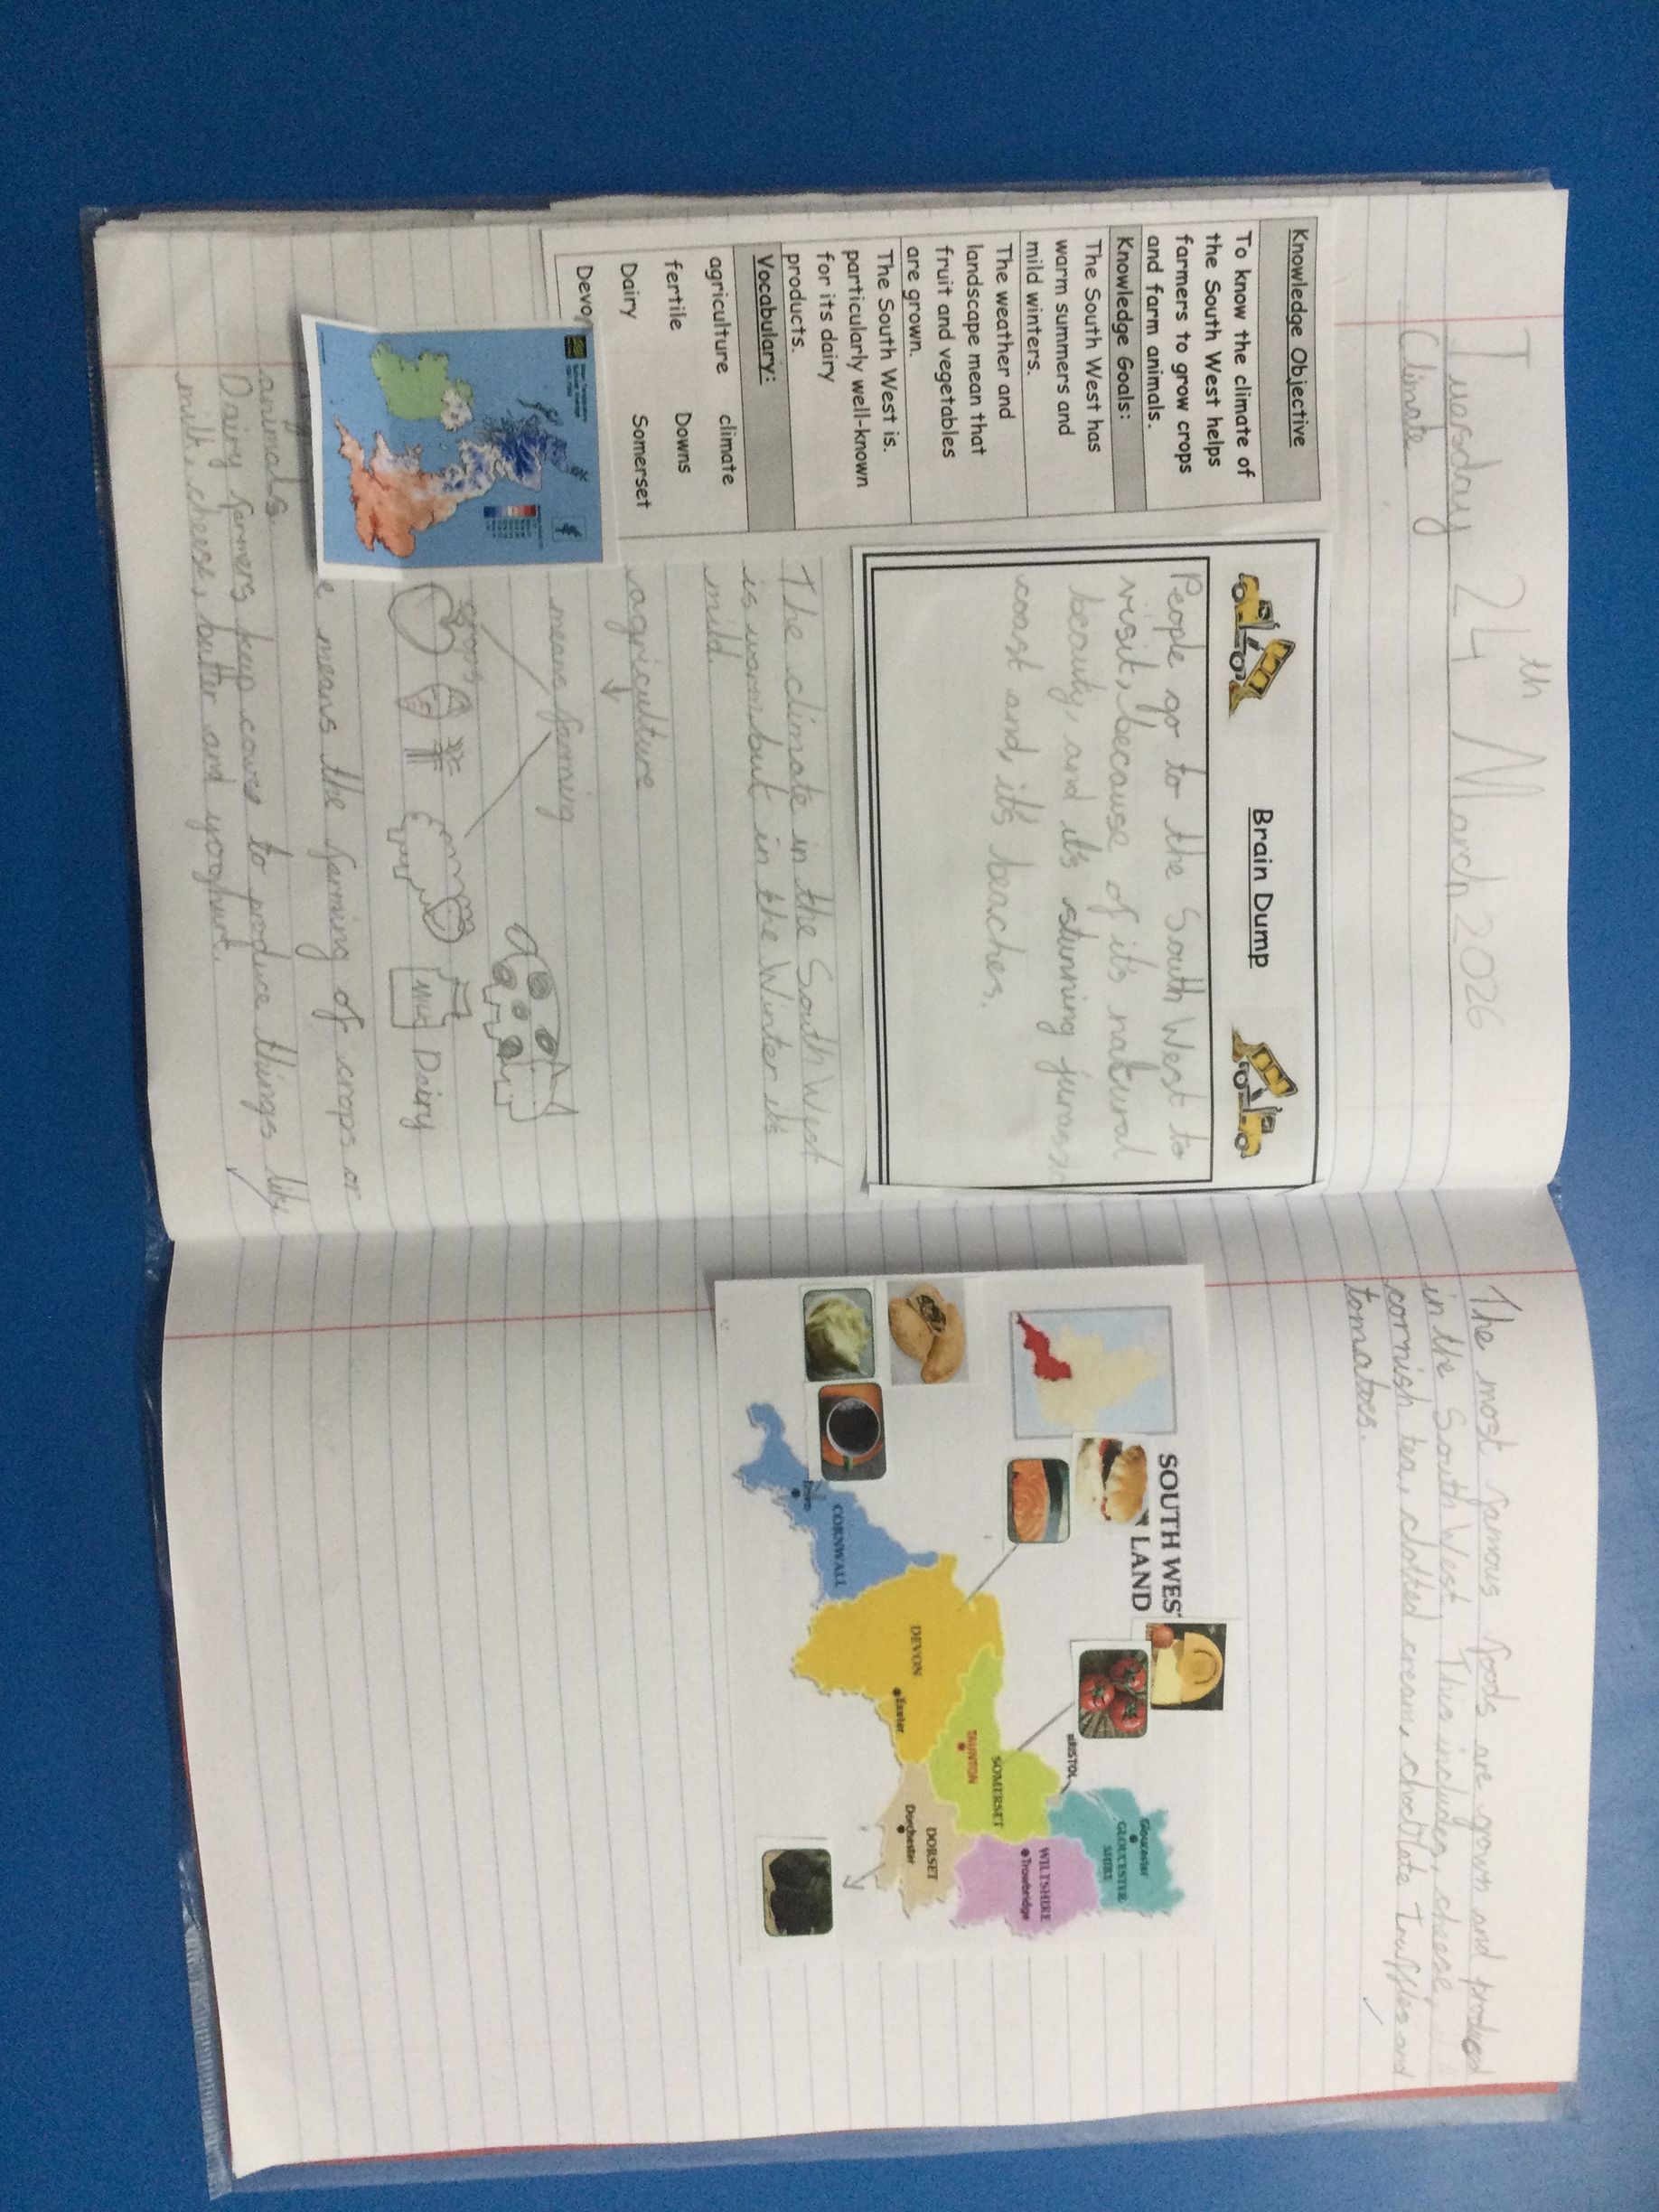 Tuesday 24th March 2026
Climate
Knowledge Objective
To know the climate of
the South West helps
farmers to grow crops
and farm animals.
Knowledge Goals:
The South West has
warm summers and
mild winters.
The weather and
landscape mean that
fruit and vegetables
are grown.
The South West is.
particularly well-known
for its dairy
products.
Vocabulary:
agriculture climate
fertile Downs
Dairy Somerset
Devon
Brain Dump
People go to the South West to
visit, because of it's natural
beauty, and it's stunning jurassic
coast and, it's beaches.
The climate in the South West
is warm but in the Winter it's
mild.
agriculture
means farming
crops
MILK Dairy
e means the farming of crops or
animals.
Dairy farmers keep cows to produce things like
milk, cheese, butter and yoghurt.
The most famous foods are grown and produced
in the South West. This includes, cheese,
cornish tea, clotted cream, choclate truffles and
tomatoes.
SOUTH WES
LAND
CORNWALL
DEVON
Exeter
SOMERSET
TAUNTON
BRISTOL
Gloucester
GLOUCESTER
SHIRE
WILTSHIRE
Trowbridge
DORSET
Dorchester